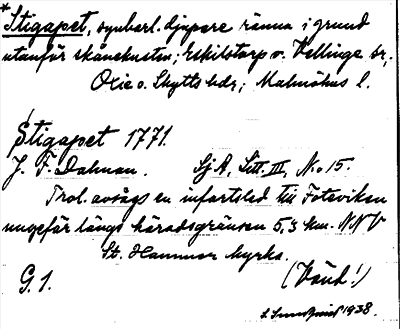 *Stigapet, synbarl. djupare ränna i grund
utanför skånekusten; Eskilstorp o. Vellinge sr,
Oxie o. Skytts hdr; Malmöhus l.
Stigapet 1771.
J. F. Dalman. SjA, Litt. III, No 15.
Trol. avsågs en infartsled till Foteviken
ungefär längs häradsgränsen 5,3 km. NNV
St. Hammar kyrka.
G. 1. (Vänd!)
1938.